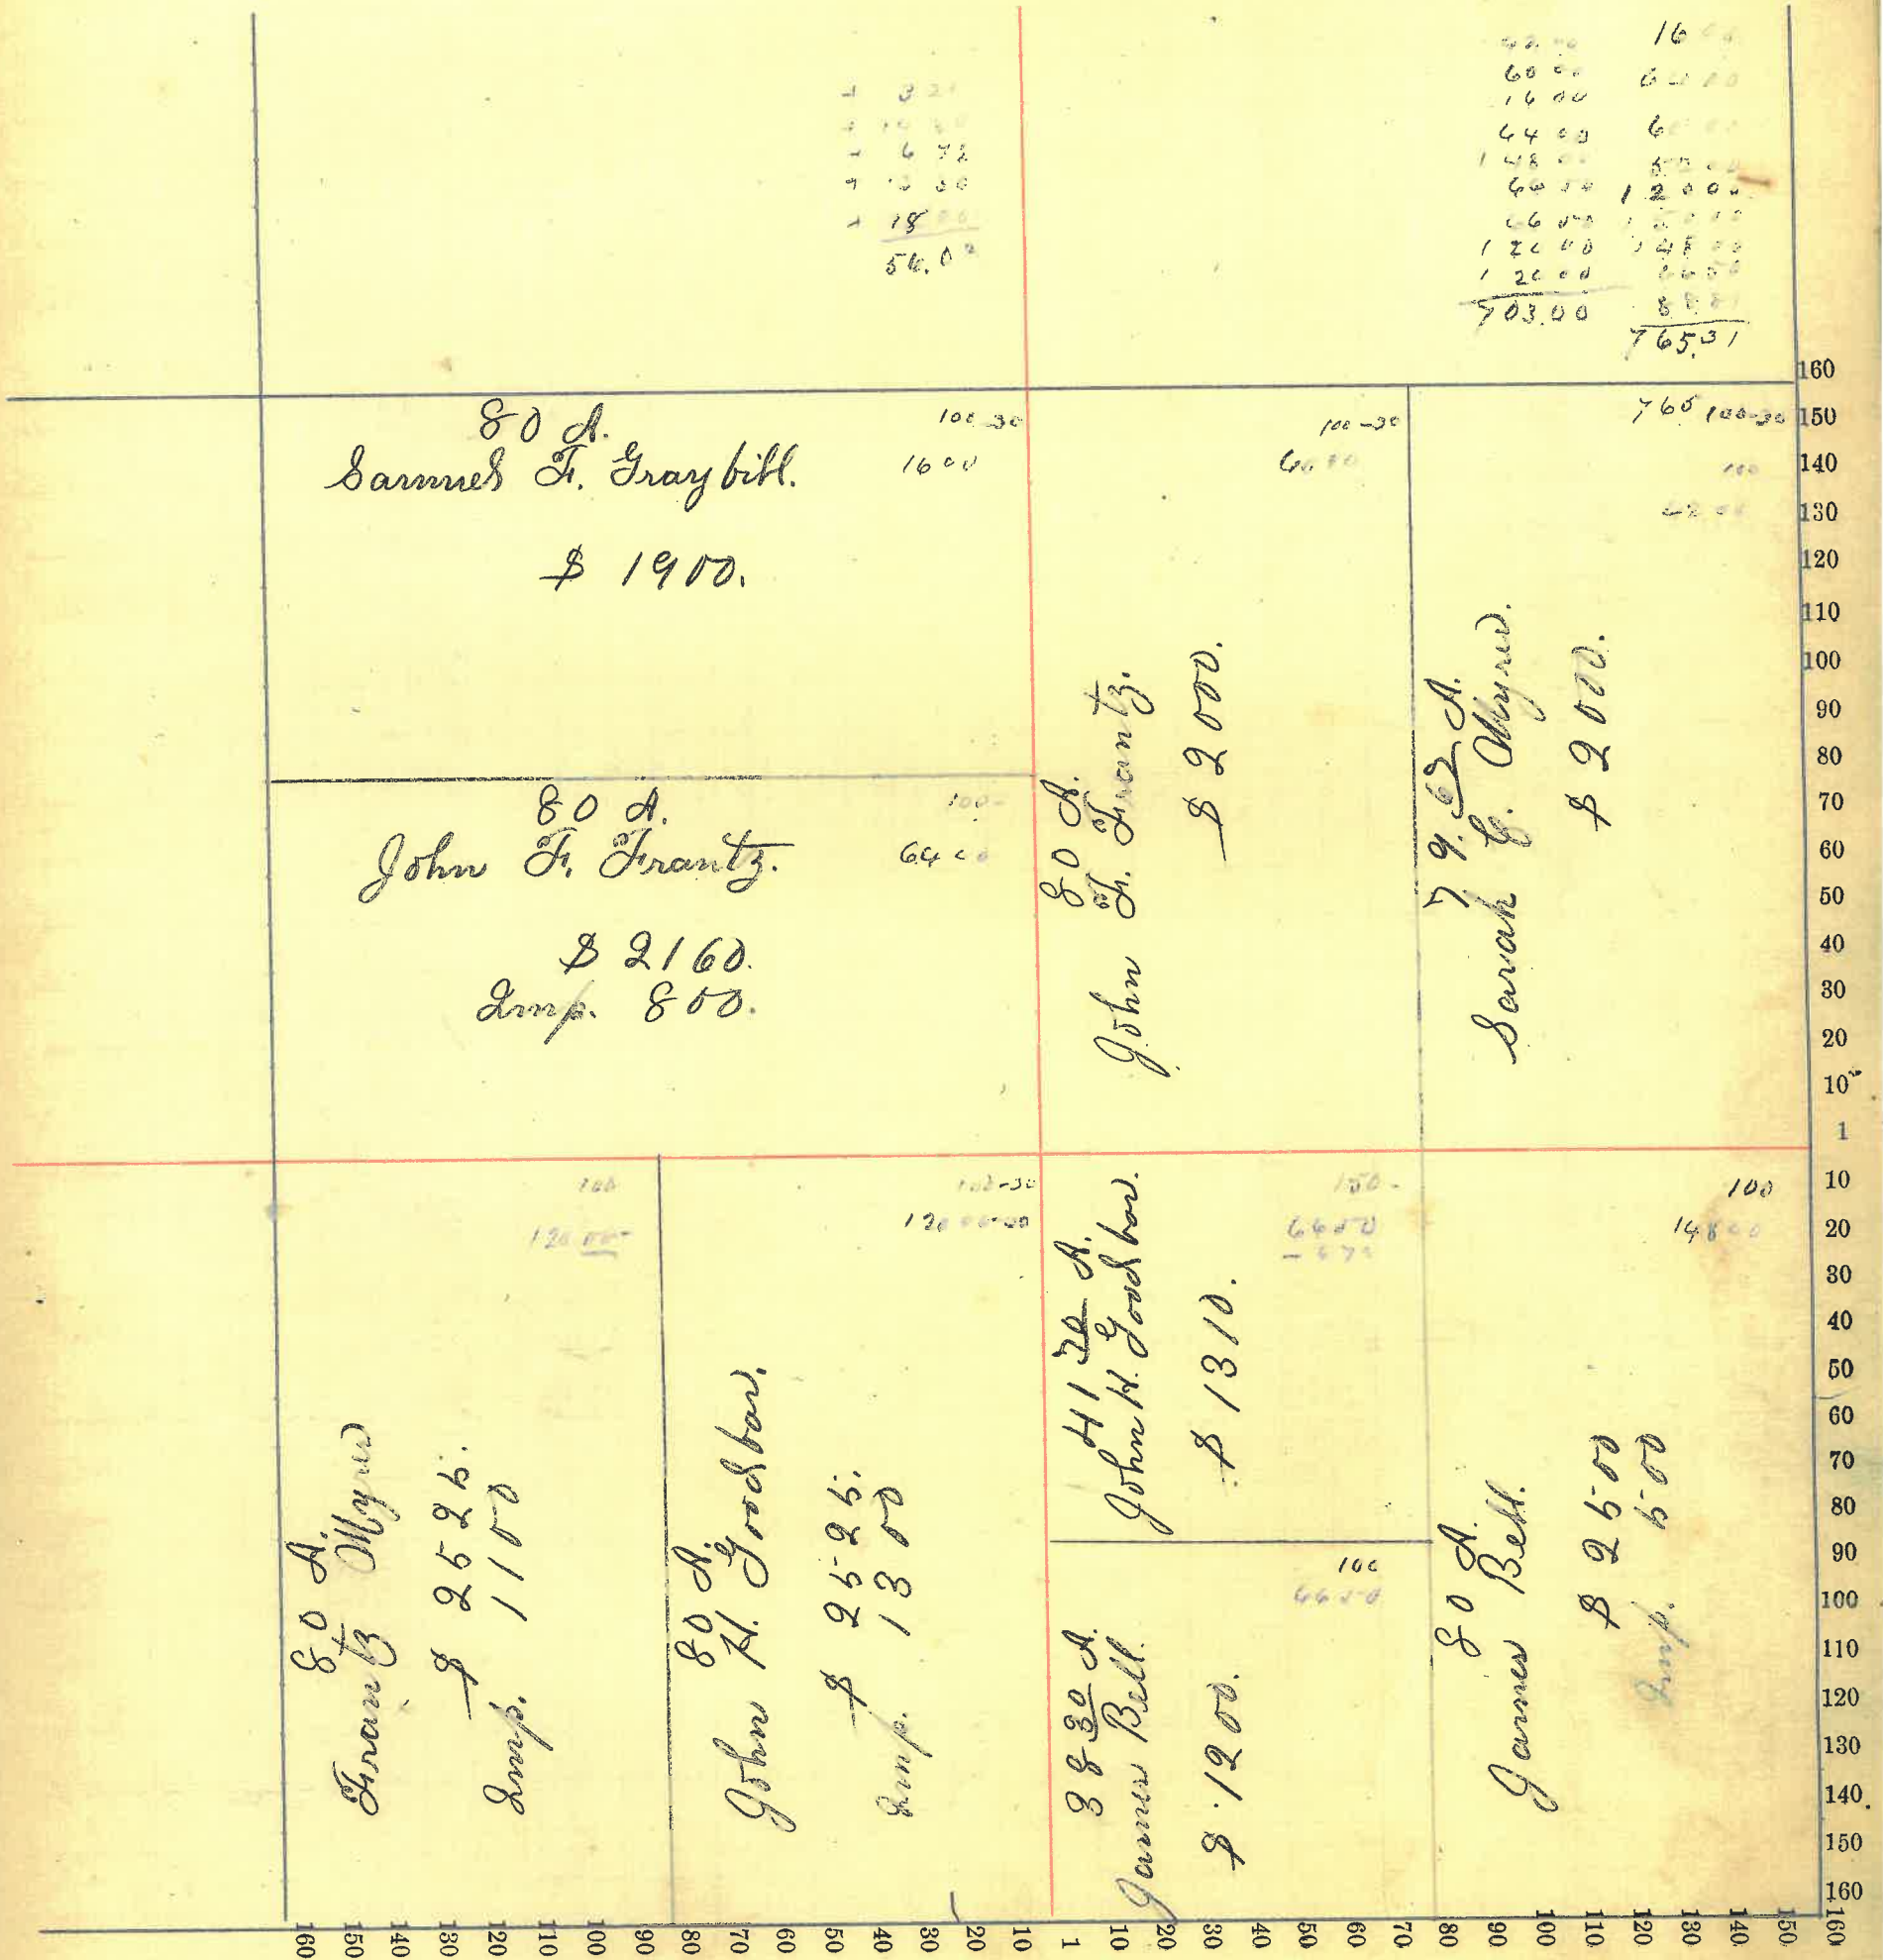 16
60 00
16 00
64 00
6
12000
18
56.0
703.00
765.31
80 A.
Samuel F. Graybill.
$ 1900.
100-30
1600
80 A.
John F. Frantz.
$ 2160.
Imp. 800.
100-
64 00
80 A.
John F. Frantz.
$ 2000.
100-30
79.62 A.
Sarah C. Myers.
$ 2000.
765 100-30
100
80 A.
Frantz Myers
$ 2525.
Imp. 1100
100
120 00
80 A.
John H. Goodbar.
$ 2525.
Imp. 1300
100-30
41 70 A.
John H. Goodbar.
$ 1310.
150-
38 30 A.
James Bell.
$ 1200.
100
80 A.
James Bell.
$ 2500
Imp. 500
100
148 00
160
150
140
130
120
110
100
90
80
70
60
50
40
30
20
10
1
10
20
30
40
50
60
70
80
90
100
110
120
130
140
150
160
160 150 140 130 120 110 100 90 80 70 60 50 40 30 20 10 1 10 20 30 40 50 60 70 80 90 100 110 120 130 140 150 160